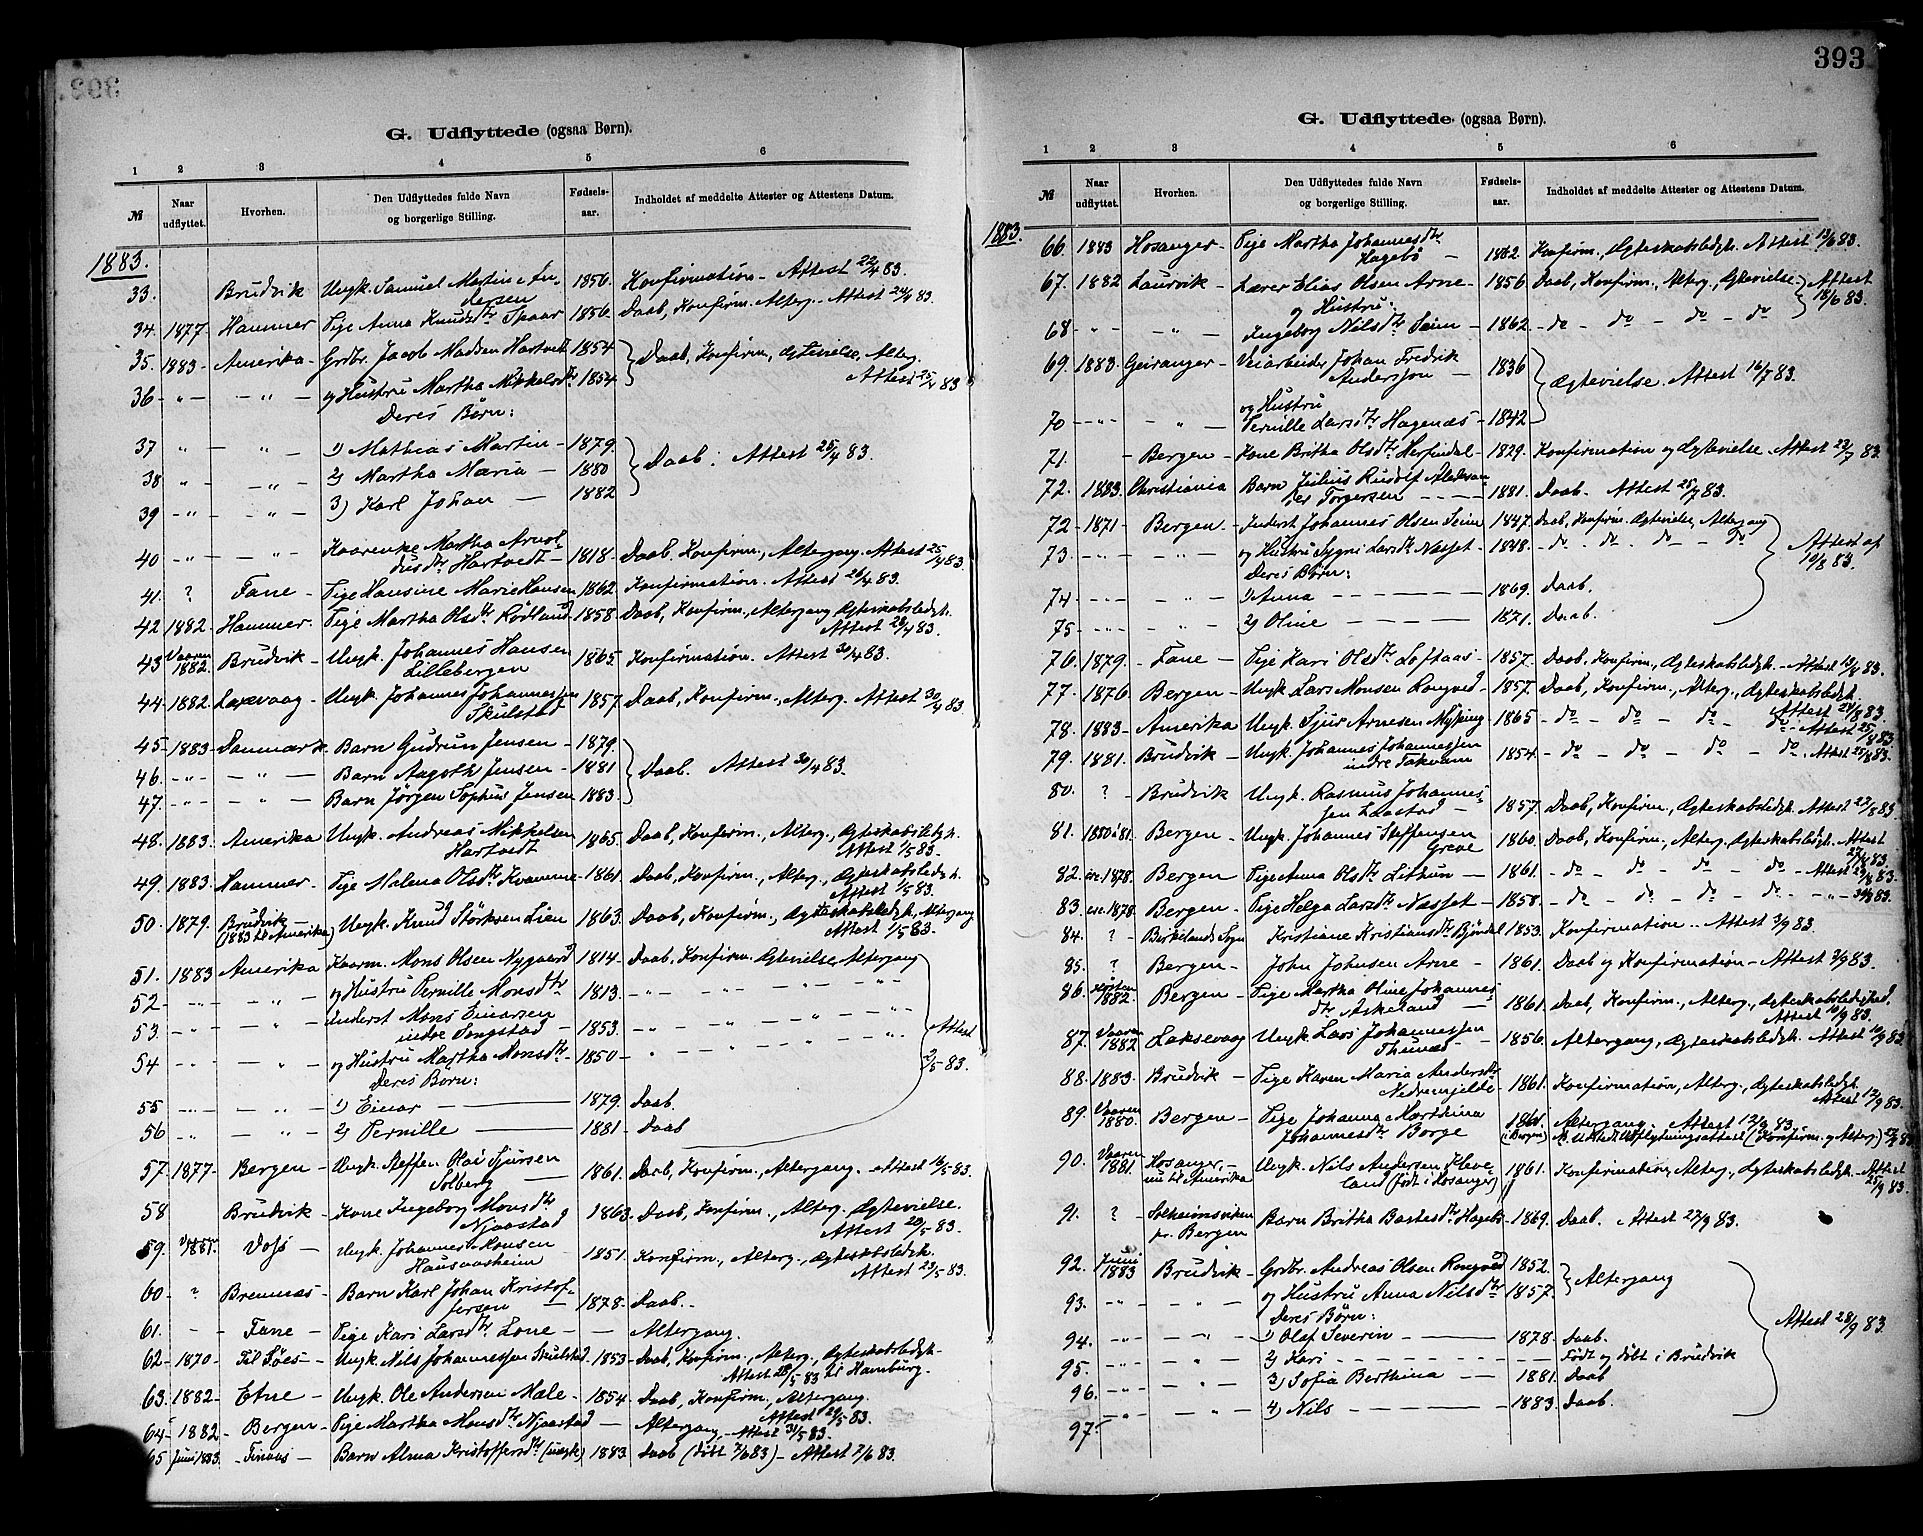 G. Udflyttede (ogsaa Børn).
1 2 3 4 5 6
№ Naar udflyttet. Hvorhen. Den Udflyttedes fulde Navn og borgerlige Stilling. Fødsels-aar. Indholdet af meddelte Attester og Attestens Datum.
1883.
33. Brudvik Ungk. Samuel Martin An-
dersen 1856. Konfirmation - Attest 22/4 83.
34. 1877. Hammer Pige Anna Knudsdtr Skaar 1856. Daab, Konfirm. Alterg. Attest 24/4 83.
35. 1883. Amerika - Grdbr. Jacob Madsen Hartvedt 1854 Daab, Konfirm, Ægtevielse, Alterg.
36 - " - - " - og Hustru Martha Mikkelsdtr 1854 Attest 25/4 83
Deres Børn:
37 " - - " - 1) Mathias Martin - 1879.
38 " - - " - 2) Martha Maria - 1880 Daab. Attest 25/4 83.
39 - " - - " - 3) Karl Johan - 1882
40 - " - - " - Kaarenke Martha Arnol-
dusdtr Hartvedt - 1818 - Daab, Konfirm., Altergang. Attest 25/4 83.
41. ? Fane - Pige Hansine Marie Hansen 1862 Konfirmation. Attest 26/4 83.
42 1882. Hammer - Pige Martha Olsdtr Rødland 1858 Daab, Konfirm., Altergang Ægteskabsledigh.
Attest 28/4 83.
43 Vaaren 1882. Brudvik - Ungk. Johannes Hansen
Lillebergen 1865. Konfirmation. Attest 30/4 83.
44. 1882. Laxevaag - Ungk. Johannes Johannessen
Skulstad 1857 Daab, Konfirm., Alterg. Attest 30/4 83
45 - 1883 - Danmark - Barn Gudrun Jensen - 1879.
46. - " - - " - Barn Aagoth Jensen - 1881 Daab. Attest 30/4 83.
47. - " - - " - Barn Jörgen Sophus Jensen 1883
48. 1883. Amerika Ungk. Andreas Mikkelsen
Hartvedt 1865. Daab, Konfirm., Alterg., Ægteskabsledigh.
Attest 1/5 83.
49. 1883. Hammer - Pige Malena Olsdtr Kvamme 1861. Daab, Konfirm., Alterg., Ægteskabsledigh.
Attest 1/5 83.
50. 1879. Brudvik (1883 til Amerika) Ungk. Knud Störksen Lien 1863. Daab, Konfirm., Ægteskabsledigh., Altergang
Attest 1/5 83.
51. 1883 Amerika Kaarm. Mons Olsen Nygaard 1814 - Daab, Konfirm. Ægtevielse, Altergang
52 - " - - " - og Hustru Pernille Monsdtr 1813. - " - - " - - " - - " -
53. - " - - " - Inderst Mons Einarsen
indre Songstad - 1853 - " - - " - - " - - " -
54 - " - - " - og Hustru Martha Monsdtr - 1850 - " - - " - - " - - " - Attest 2/5 83.
Deres Børn:
55 - " - - " - 1) Einar - 1879. Daab.
56 - " - - " - 2) Pernille - 1881 - Daab
57 - 1877 - Bergen - Ungk. Steffen Olai Sjursen
Solberg - 1861. Daab, Konfirm., Altergang. Attest 16/5 83.
58 Brudvik - Kone Ingeborg Monsdtr
Njaastad 1863. Daab, Konfirm., Alterg. Ægtevielse.
Attest 20/5 83.
59. Voss - Ungk. Johannes Monsen
1851. Konfirm., Alterg., Ægteskabsledigh.
Attest 23/5 83.
60 - ? Bremnæs - Barn Karl Johan Kristof-
fersen 1878 - Daab.
61. - - Fane - Pige Kari Larsdtr Lone - - Altergang.
62 - 1870 - Til Søes - Ungk. Nils Johannessen Skulstad 1853 - Daab, Konfirm., Alterg., Ægteskabsledigh.
Attest 28/5 83 til Hamburg.
63. 1882 - Etne - Ungk. Ole Andersen Male - 1854 Daab, Konfirm., Altergang.
Attest 29/5 83.
64 - 1882 - Bergen - Pige Martha Monsdtr Njaastad - Altergang. Attest 31/5 83.
65 Juni 1883. - Finaas - Barn Alma Kristoffersdtr (uægte) 1883 Daab (døbt 2/6 83) - Attest 2/6 83.
393
G. Udflyttede (ogsaa Børn).
1 2 3 4 5 6
№ Naar udflyttet. Hvorhen. Den Udflyttedes fulde Navn og borgerlige Stilling. Fødsels-aar. Indholdet af meddelte Attester og Attestens Datum.
1883.
66. 1883 Hosanger - Pige Martha Johannesdtr
Hagebö - 1862 Konfirm., Ægteskabsledigh. Attest 13/6 83.
67. 1882 Laurvik - Lærer Elias Olsen Arne - 1856 Daab, Konfirm., Alterg., Ægtevielse. Attest 18/6 83.
og Hustru:
68 - " - - " - Ingeborg Nilsdtr Seim - 1862 - do - do - do - do
69. 1883. Geiranger - Veiarbeider Johan Fredrik
Andersson - 1836 Ægtevielse. Attest 16/7 83.
og Hustru
70 - " - " - Pernille Larsdtr Hagenæs - 1842
71. - Bergen - Kone Britha Olsdtr Herfindal - 1829. Konfirmation og Ægtevielse. Attest 23/7 83.
72. 1883. Christiania Barn Julius Rudolf Aleksan-
der Torgersen - 1881. Daab. Attest 25/7 83.
72 - 1871 - Bergen - Inderst Johannes Olsen Seim 1847. Daab, Konfirm. Ægtevielse, Altergang
73. - " - - " - og Hustru Sygni Larsdtr Næsset - 1848. - do - do - do - do Attest af 10/8 83.
Deres Børn:
74 - " - " - 1) Anna - 1869. Daab.
75 - " - " - 2) Oline - 1871. Daab.
76. 1879. - Fane - Pige Kari Olsdtr Loftaas - 1857. Daab, Konfirm., Ægteskabsledigh. - Attest 13/8 83.
77. 1876 Bergen - Ungk. Lars Monsen Rongved - 1857. Daab, Konfirm., Alterg., Ægteskabsledigh.
Attest 24/8 83
78. 1883 - Amerika Ungk. Sjur Arnesen Myking 1865 - do - do - do - do - Attest 25/8 83.
79. 1881. Brudvik - Ungk. Johannes Johannessen
indre Takvam 1854 - do - do - do - do. Attest 27/8 83.
80. ? - Brudvik Ungk. Rasmus Johannes-
sen Laastad - 1857. Daab, Konfirm., Ægteskabsledigh. Attest 27/8 83
81. 1880 à 81. Bergen - Ungk. Johannes Steffensen
Greve 1860. Daab, Konfirm., Alterg., Ægteskabsledigh. Attest 27/8 83.
82. circ. 1878. Bergen - Pige Anna Olsdtr Lithun - 1861. - do - do - do - do - Attest 29/8 83.
83. circ. 1878. Bergen - Pige Helga Larsdtr Næsset - 1858. - do - do - do - do - " - 30/8 83.
84. ? - Birkelands Sogn Kristiane Kristiansdtr Bjöndal 1853. Konfirmation .. Attest 3/9 83.
85. ? Bergen - John Johnsen Arne - 1861. Daab og Konfirmation - Attest 9/9 83.
86. Høsten 1882. Bergen - Pige Martha Oline Johannes-
dtr Askeland - 1861. Daab, Konfirm., Alterg., Ægteskabsledighed.
Attest 10/9 83.
87. Vaaren 1882 Laksevaag Ungk. Lars Johannessen
Thunæs - 1856. Altergang, Ægteskabsledigh. Attest 10/9 83
88. 1883. Brudvik - Pige Karen Maria Andersdtr
Nedremjelde 1861. Konfirmation, Alterg., Ægteskabsledigh.
Attest 12/9 83.
89. Vaaren 1880. Bergen - Pige Johanna Marthina
Johannesdtr Borge 1861 (i Bergen) Altergang. Attest 12/9 83.
Udflytningsattest (Konfirm. og Alterg.)
90. Vaaren 1881. Hosanger, - nu til Amerika Ungk. Nils Andersen Kleve-
land (født i Hosanger) 1861. Konfirmation, Alterg., Ægteskabsledigh. - Attest 25/9 83.
91. ? - Solheimsviken pr. Bergen Barn Britha Bastesdtr Hagebö 1869. Daab. Attest 27/9 83.
92. Juni 1883 Brudvik - Grdbr. Andreas Olsen Rongved 1852. Altergang
93. - " - " - og Hustru Anna Nilsdtr 1857.
Deres Børn:
94. - " - " - 1) Olaf Severin - 1878 Daab. Attest 28/9 83.
95. - " - " - 2) Kari - - Født og døbt i Brudvik
96. - " - " - 3) Sofia Berthina - 1881. Daab
97. - " - " - 4) Nils - 1883 Daab.